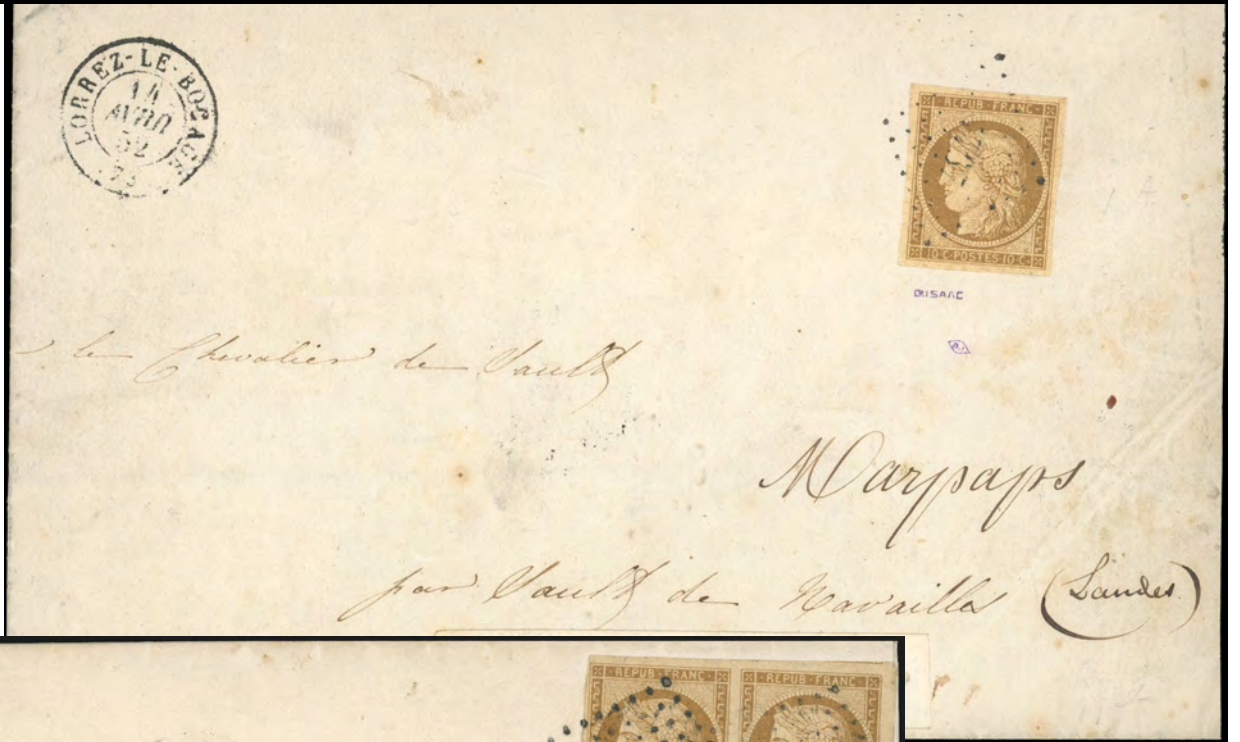 LORREZ-LE-BOCAGE
14
AVRIL
52
REPUB FRANC
10·C·POSTES·10·C
le Chevalier de Sault
Marpaps
par Sault de Navailles (Landes)
REPUB FRANC REPUB FRANC